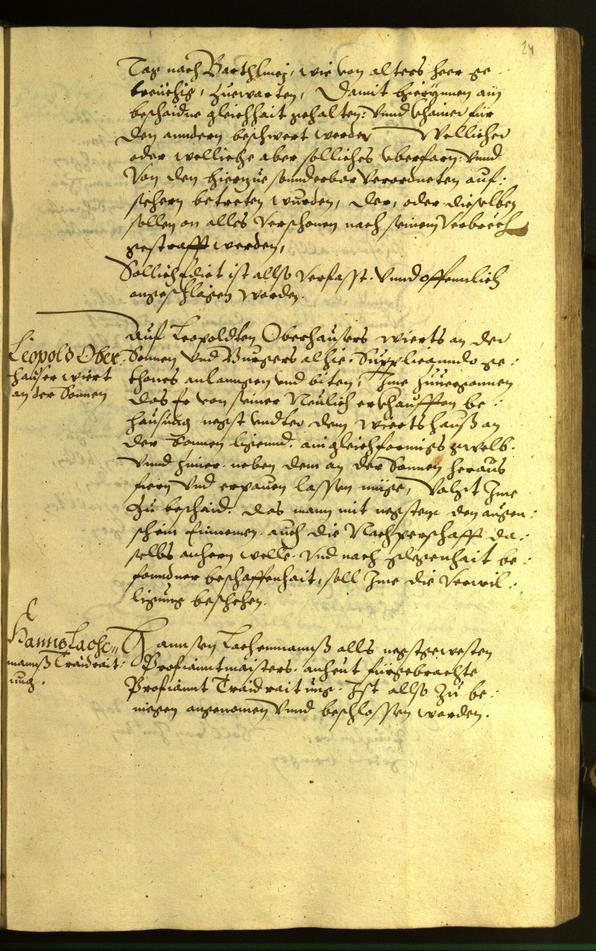 24
Tag nach Barthlmej, wie von alters heer ge:
breüchig, zuewarten, Damit hierjnnen ain
beschaidne gleichhait gehalten: vnnd khainer für
den anndern beschwert werde. Wellicher
oder welliche aber solliches vberfarn: vnnd
von den hierzue sonderbar verordneten auf:
sehern betreten wurden, der, oder dieselben
sollen on alles verschonen nach seinem verbrech
gestrafft werden,
Sollich Edict ist allso verfasst. vnnd offenntlich
angeschlagen worden.
Leopold Ober:
hauser wiert
an der Sonnen
Auf Leopoldten Oberhausers wierts an der
Sonnen vnd Burgers alhie. Supplicanndo ge:
thones anlanngen vnd biten, Jme zuuergonnen
das Er von seiner Neulich erkhaufften be:
hausung negst vndter dem wierts hauß an
der Sonnen ligennd. ain gleichformigs gwelb.
vnnd Zimer. neben dem an der Sonnen heraus
fiern vnd erpauen lassen müge, Volgt Jme
zu beschaid. das mann mit negstem den augen:
schein Einnemen. auch die Nachperschafft da:
selbs anhern welle. vnd nach glegenhait be:
fonndner beschaffenhait, soll Jme die verwil:
ligung beschehen.
Hanns Lache:
manns Traidrait:
ung.
Hannsen Lachenmanns alls negstgewesten
Profiantmaisters. anheut fürgebrachte
Profiannt Traidraitung. Ist allso zu be:
niegen angenomen vnnd beschlossen worden.